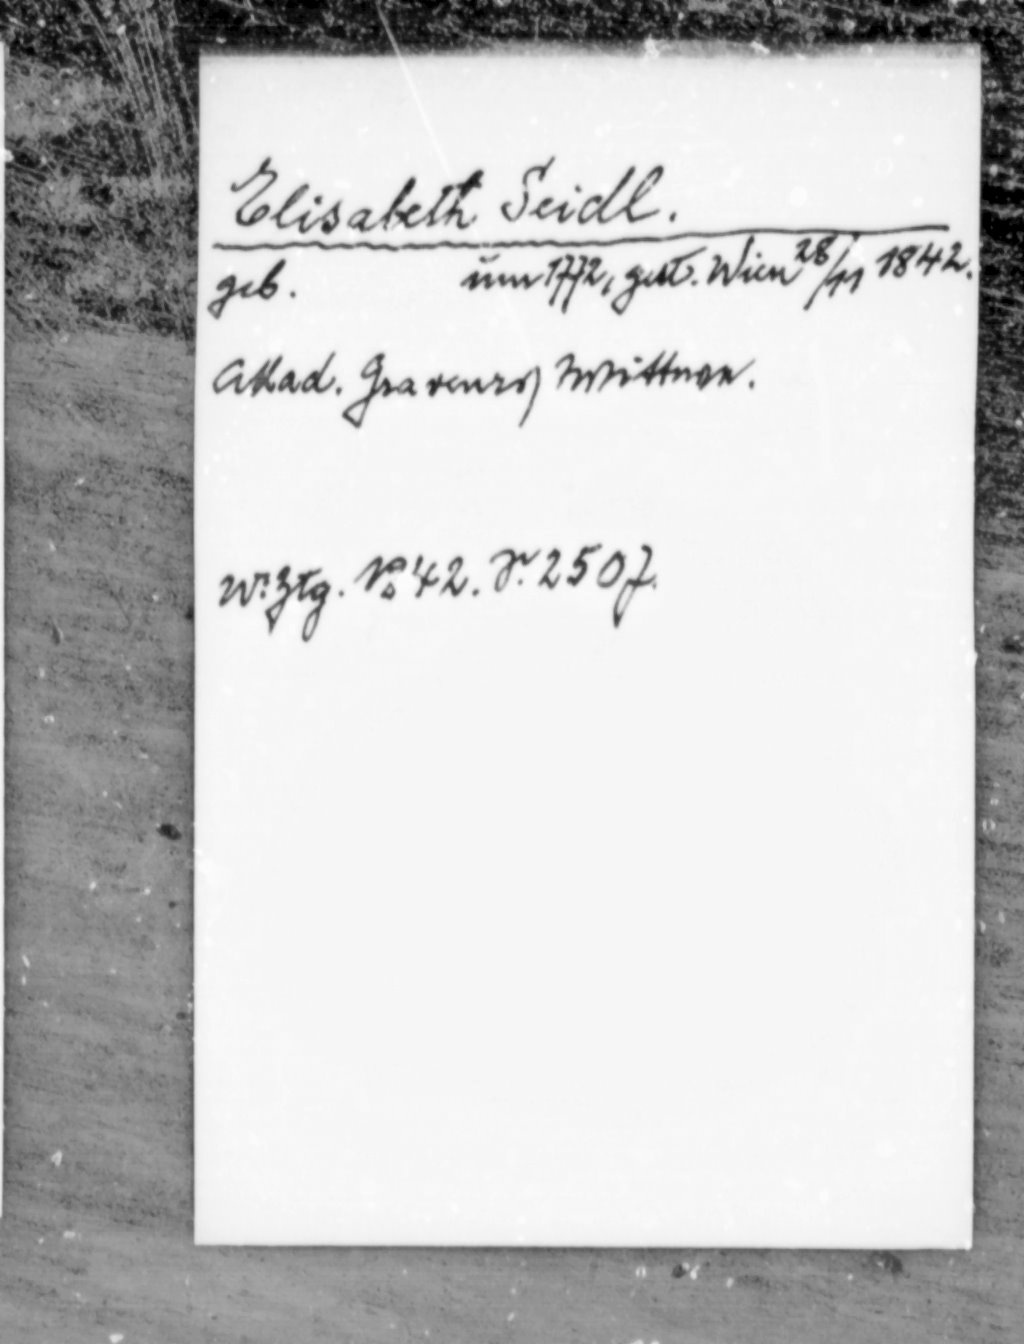 Elisabeth Seidl.
geb. um 1772, gest. Wien 28/11 1842.
Akad. Graveurs Wittwe.
Wr. Ztg. No 42. S. 2507.